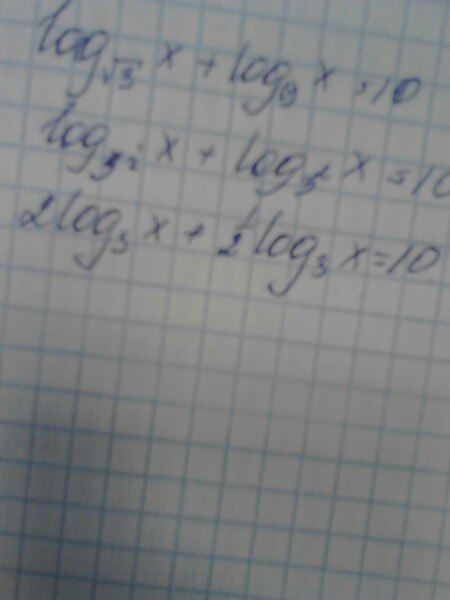 log_√3 x + log_9 x = 10
log_3^½ x + log_3² x = 10
2log_3 x + ½log_3 x = 10